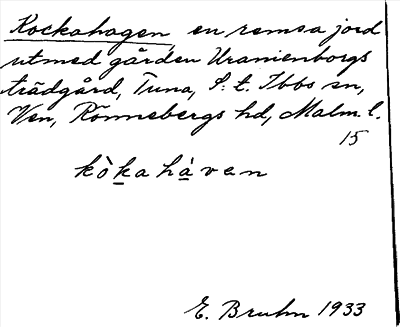 Kockahagen, en remsa jord
utmed gården Uranienborgs
trädgård, Tuna, S:t. Ibbs sn,
Ven, Rönnebergs hd, Malm. l.
15
kò̱kahà̱ven
E. Bruhn 1933